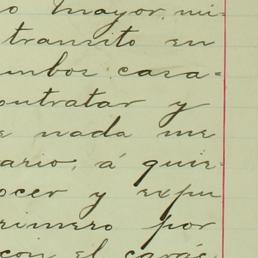 o mayor, mi-
transito en
umbos casa-
ontratar y
e nada me
ario, á quie-
ocer y expu
rimero por
con el carác